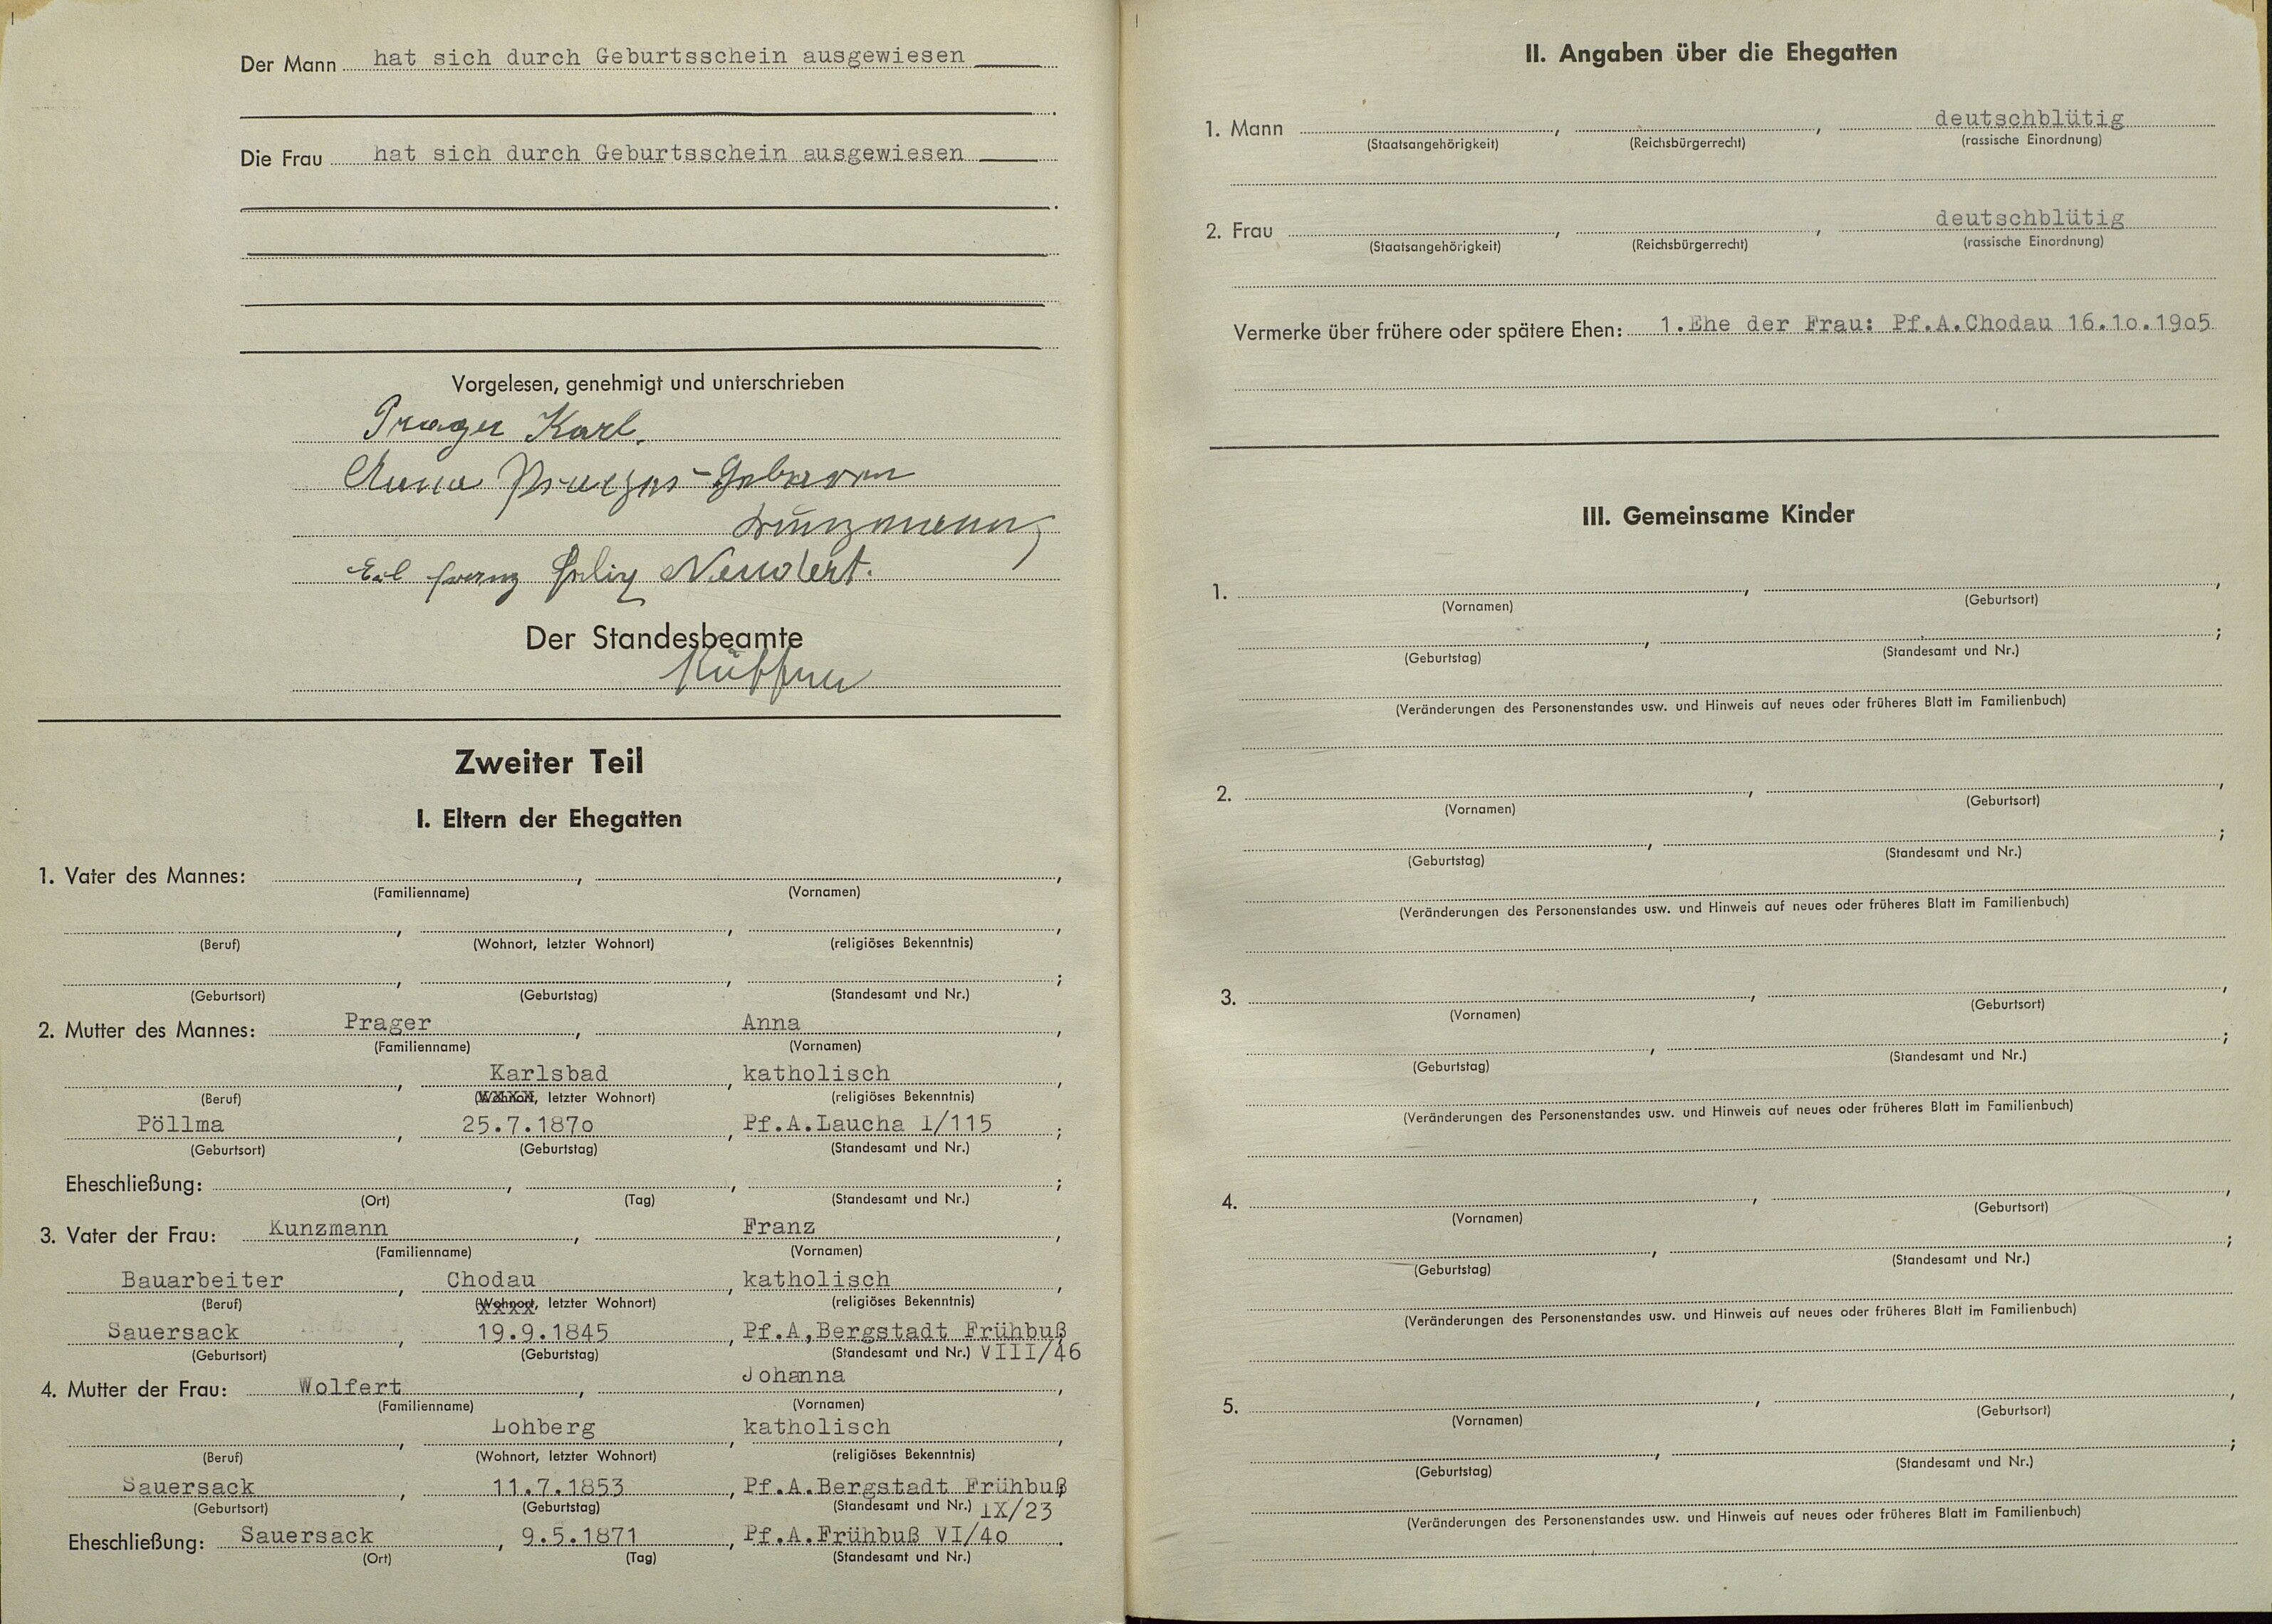 Der Mann hat sich durch Geburtsschein ausgewiesen
Die Frau hat sich durch Geburtsschein ausgewiesen
Vorgelesen, genehmigt und unterschrieben
Prager Karl.
Anna Prager Geboren
Kunzmann
Franz Felix Neudert.
Der Standesbeamte
Zweiter Teil
I. Eltern der Ehegatten
1. Vater des Mannes: , ,
(Familienname) (Vornamen)
, , ,
(Beruf) (Wohnort, letzter Wohnort) (religiöses Bekenntnis)
, , ;
(Geburtsort) (Geburtstag) (Standesamt und Nr.)
2. Mutter des Mannes: Prager , Anna ,
(Familienname) (Vornamen)
, Karlsbad , katholisch ,
(Beruf) (Wohnort, letzter Wohnort) (religiöses Bekenntnis)
Pöllma , 25.7.187o , Pf.A.Laucha I/115 ;
(Geburtsort) (Geburtstag) (Standesamt und Nr.)
Eheschließung: , , ;
(Ort) (Tag) (Standesamt und Nr.)
3. Vater der Frau: Kunzmann , Franz ,
(Familienname) (Vornamen)
Bauarbeiter , Chodau , katholisch ,
(Beruf) (Wohnort, letzter Wohnort) (religiöses Bekenntnis)
Sauersack , 19.9.1845 , Pf.A,Bergstadt Frühbuß
(Geburtsort) (Geburtstag) (Standesamt und Nr.) VIII/46
4. Mutter der Frau: Wolfert , Johanna ,
(Familienname) (Vornamen)
, Lohberg , katholisch ,
(Beruf) (Wohnort, letzter Wohnort) (religiöses Bekenntnis)
Sauersack , 11.7.1853 , Pf.A.Bergstadt Frühbuß
(Geburtsort) (Geburtstag) (Standesamt und Nr.) IX/23
Eheschließung: Sauersack , 9.5.1871 , Pf.A.Frühbuß VI/4o .
(Ort) (Tag) (Standesamt und Nr.)
II. Angaben über die Ehegatten
1. Mann , , deutschblütig
(Staatsangehörigkeit) (Reichsbürgerrecht) (rassische Einordnung)
2. Frau , , deutschblütig
(Staatsangehörigkeit) (Reichsbürgerrecht) (rassische Einordnung)
Vermerke über frühere oder spätere Ehen: 1.Ehe der Frau: Pf.A.Chodau 16.1o.19o5
III. Gemeinsame Kinder
1. , ,
(Vornamen) (Geburtsort)
, ;
(Geburtstag) (Standesamt und Nr.)
(Veränderungen des Personenstandes usw. und Hinweis auf neues oder früheres Blatt im Familienbuch)
2. , ,
(Vornamen) (Geburtsort)
, ;
(Geburtstag) (Standesamt und Nr.)
(Veränderungen des Personenstandes usw. und Hinweis auf neues oder früheres Blatt im Familienbuch)
3. , ,
(Vornamen) (Geburtsort)
, ;
(Geburtstag) (Standesamt und Nr.)
(Veränderungen des Personenstandes usw. und Hinweis auf neues oder früheres Blatt im Familienbuch)
4. , ,
(Vornamen) (Geburtsort)
, ;
(Geburtstag) (Standesamt und Nr.)
(Veränderungen des Personenstandes usw. und Hinweis auf neues oder früheres Blatt im Familienbuch)
5. , ,
(Vornamen) (Geburtsort)
, ;
(Geburtstag) (Standesamt und Nr.)
(Veränderungen des Personenstandes usw. und Hinweis auf neues oder früheres Blatt im Familienbuch)